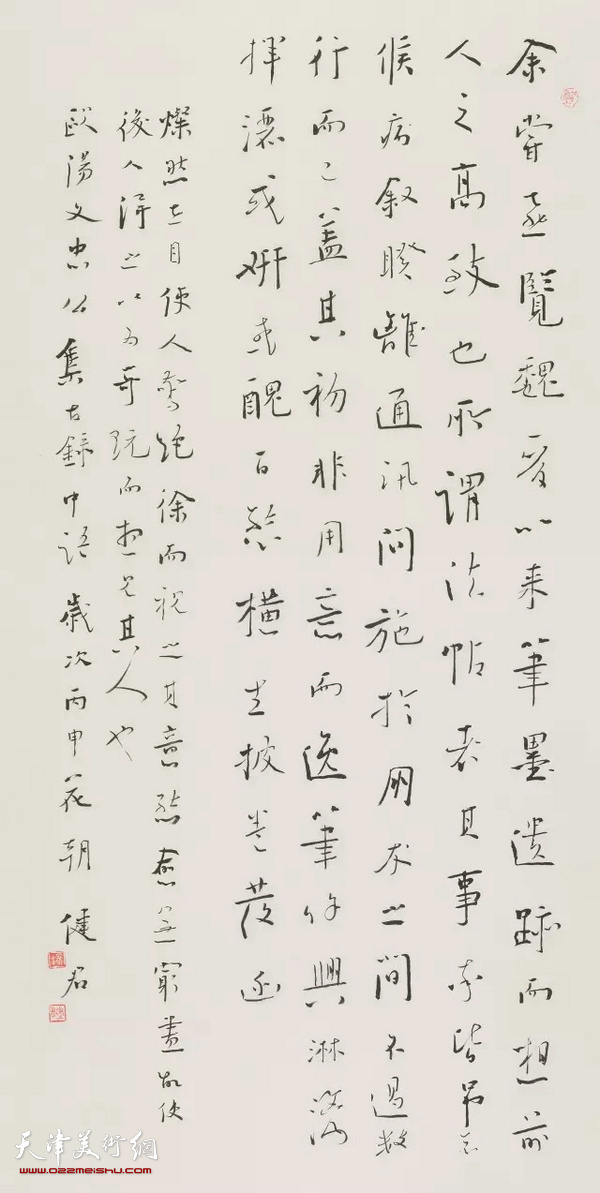 余尝喜覽魏晉以来筆墨遺跡而想前
人之高致也所謂法帖者其事率皆吊哀
候病叙睽離通汛問施於家人之間不過數
行而已蓋其初非用意而逸筆餘興淋漓
揮灑或妍或醜百態横生披卷發函
燦然在目使人驚絶徐而視之其意態愈無窮盡故使
後人得之以为奇玩而想見其人也
歐陽文忠公集古録中語歲次丙申花朝健君
天津美術網
www.022meishu.com